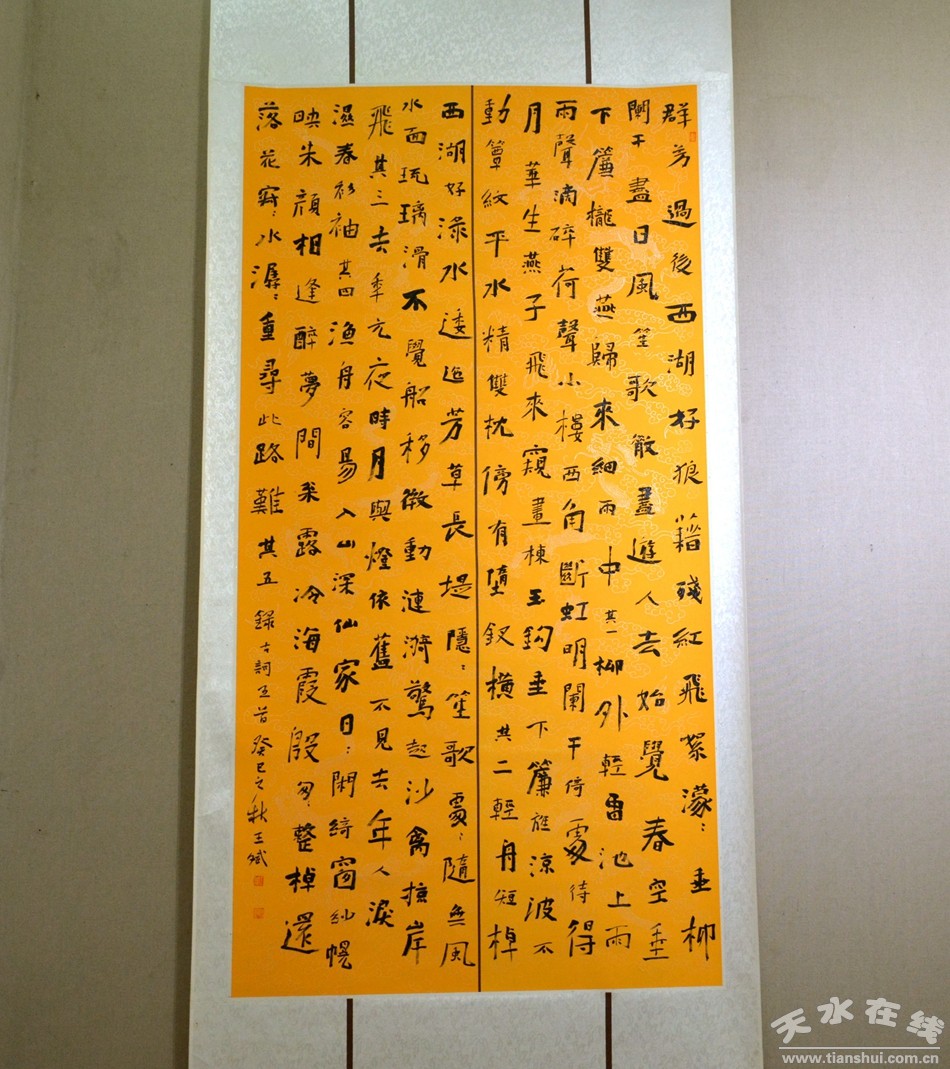 群芳過後西湖好狼藉殘紅飛絮濛〻垂柳
闌干盡日風笙歌散盡遊人去始覺春空垂
下簾櫳雙燕歸來細雨中其一柳外輕雷池上雨
雨聲滴碎荷聲小樓西角斷虹明闌干倚處待得
月華生燕子飛來窺畫棟玉鈎垂下簾旌涼波不
動簟紋平水精雙枕傍有墮釵橫其二輕舟短棹
西湖好淥水逶迤芳草長堤隱〻笙歌處〻隨無風
水面琉璃滑不覺船移微動漣漪驚起沙禽掠岸
飛其三去年元夜時月與燈依舊不見去年人淚
濕春衫袖其四漁舟容易入山深仙家日〻閑綺窗紗幌
映朱顏相逢醉夢間松露冷海霞殷匆〻整棹還
落花寂〻水潺〻重尋此路難其五錄古詞五首癸巳之秋王
天水在线
www.tianshui.com.cn